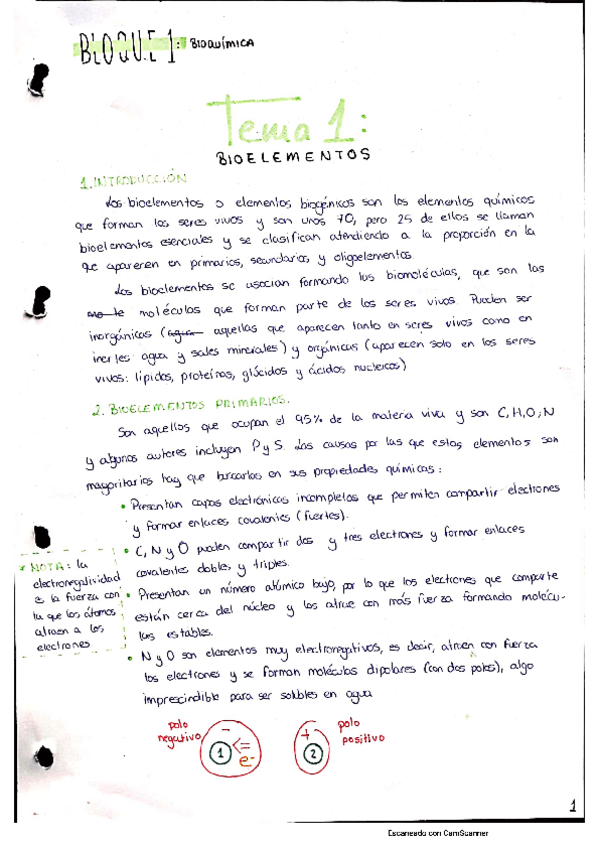 BLOQUE 1: BIOQUÍMICA
Tema 1:
BIOELEMENTOS
1. INTRODUCCIÓN
Los bioelementos o elementos biogénicos son los elementos químicos
que forman los seres vivos y son unos 70, pero 25 de ellos se llaman
bioelementos esenciales y se clasifican atendiendo a la proporción en la
que aparecen en primarios, secundarios y oligoelementos
Los bioelementos se asocian formando las biomoléculas, que son las
moléculas que forman parte de los seres vivos. Pueden ser
inorgánicas (agua aquellas que aparecen tanto en seres vivos como en
inertes agua y sales minerales) y orgánicas (aparecen solo en los seres
vivos: lípidos, proteínas, glúcidos y ácidos nucleicos)
2. BIOELEMENTOS PRIMARIOS.
Son aquellos que ocupan el 95% de la materia viva y son C, H, O, N
y algunos autores incluyen P y S. Las causas por las que estos elementos son
mayoritarios hay que buscarlas en sus propiedades químicas:
• Presentan capas electrónicas incompletas que permiten compartir electrones
y formar enlaces covalentes (fuertes).
• C, N y O pueden compartir dos y tres electrones y formar enlaces
covalentes dobles y triples.
• Presentan un número atómico bajo, por lo que los electrones que comparte
están cerca del núcleo y los atrae con más fuerza formando molécu-
las estables.
• N y O son elementos muy electronegativos, es decir, atraen con fuerza
los electrones y se forman moléculas dipolares (con dos polos), algo
imprescindible para ser solubles en agua
* NOTA: la
electronegatividad
es la fuerza con
la que los átomos
atraen a los
electrones
polo
negativo
-
1
<= e-
+
2
polo
positivo
1
Escaneado con CamScanner